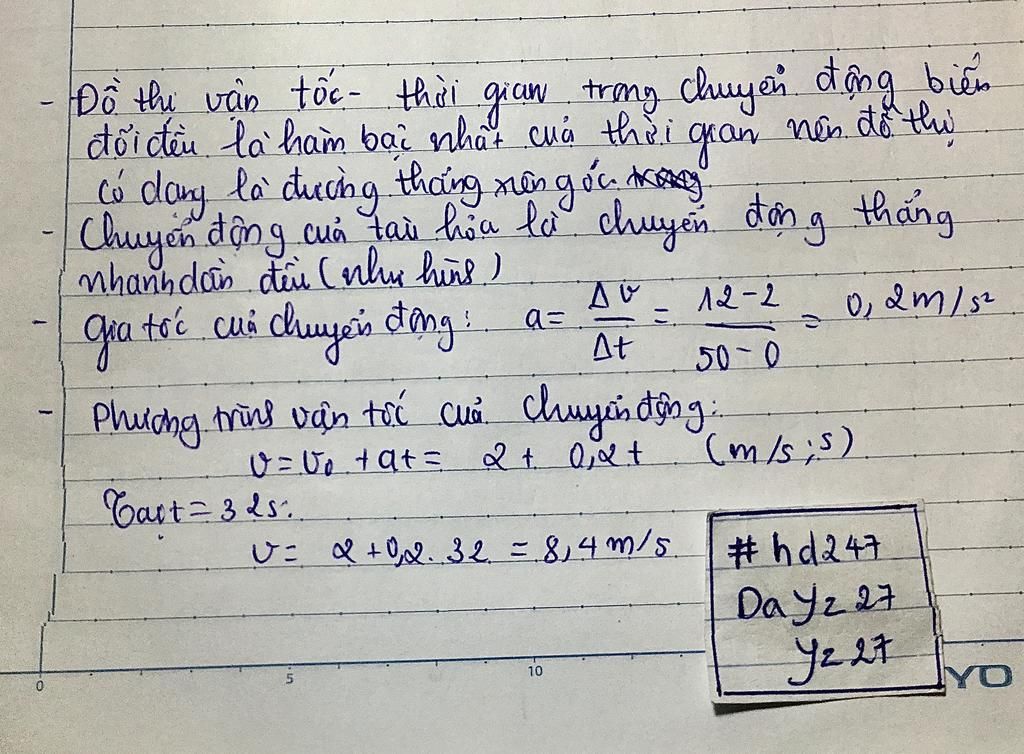 - Đồ thị vận tốc - thời gian trong chuyển động biến
đổi đều là hàm bậc nhất của thời gian nên đồ thị
có dạng là đường thẳng xiên góc
- Chuyển động của tàu hỏa là chuyển động thẳng
nhanh dần đều (như hình)
- Gia tốc của chuyển động: a = Δv/Δt = (12-2)/(50-0) = 0,2m/s²
- Phương trình vận tốc của chuyển động:
v = v₀ + at = 2 + 0,2t (m/s; s)
Tại t = 32s:
v = 2 + 0,2. 32 = 8,4 m/s
#hd247
Da Yz 27
Yz 27
0 5 10
YO